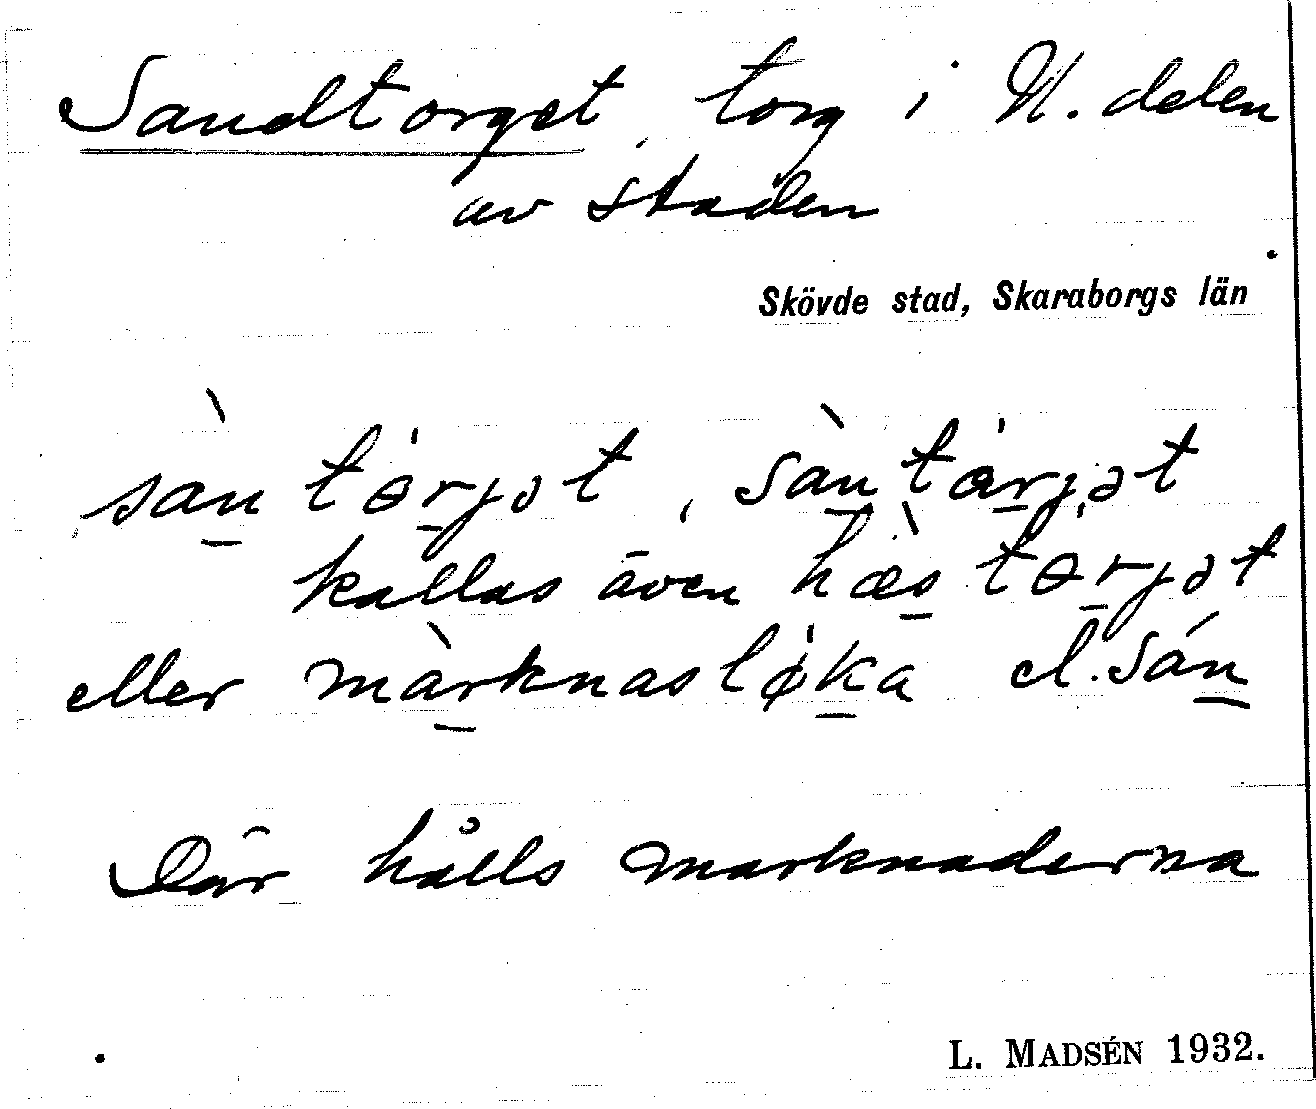 Sandtorget, torg i N. delen
av staden
Skövde stad, Skaraborgs län
sàn tɵrjət, sàntarjət
kallas även hæ̀s tɵrjət
eller màrknasløka el. sán
Där hålls marknaderna
L. MADSÉN 1932.